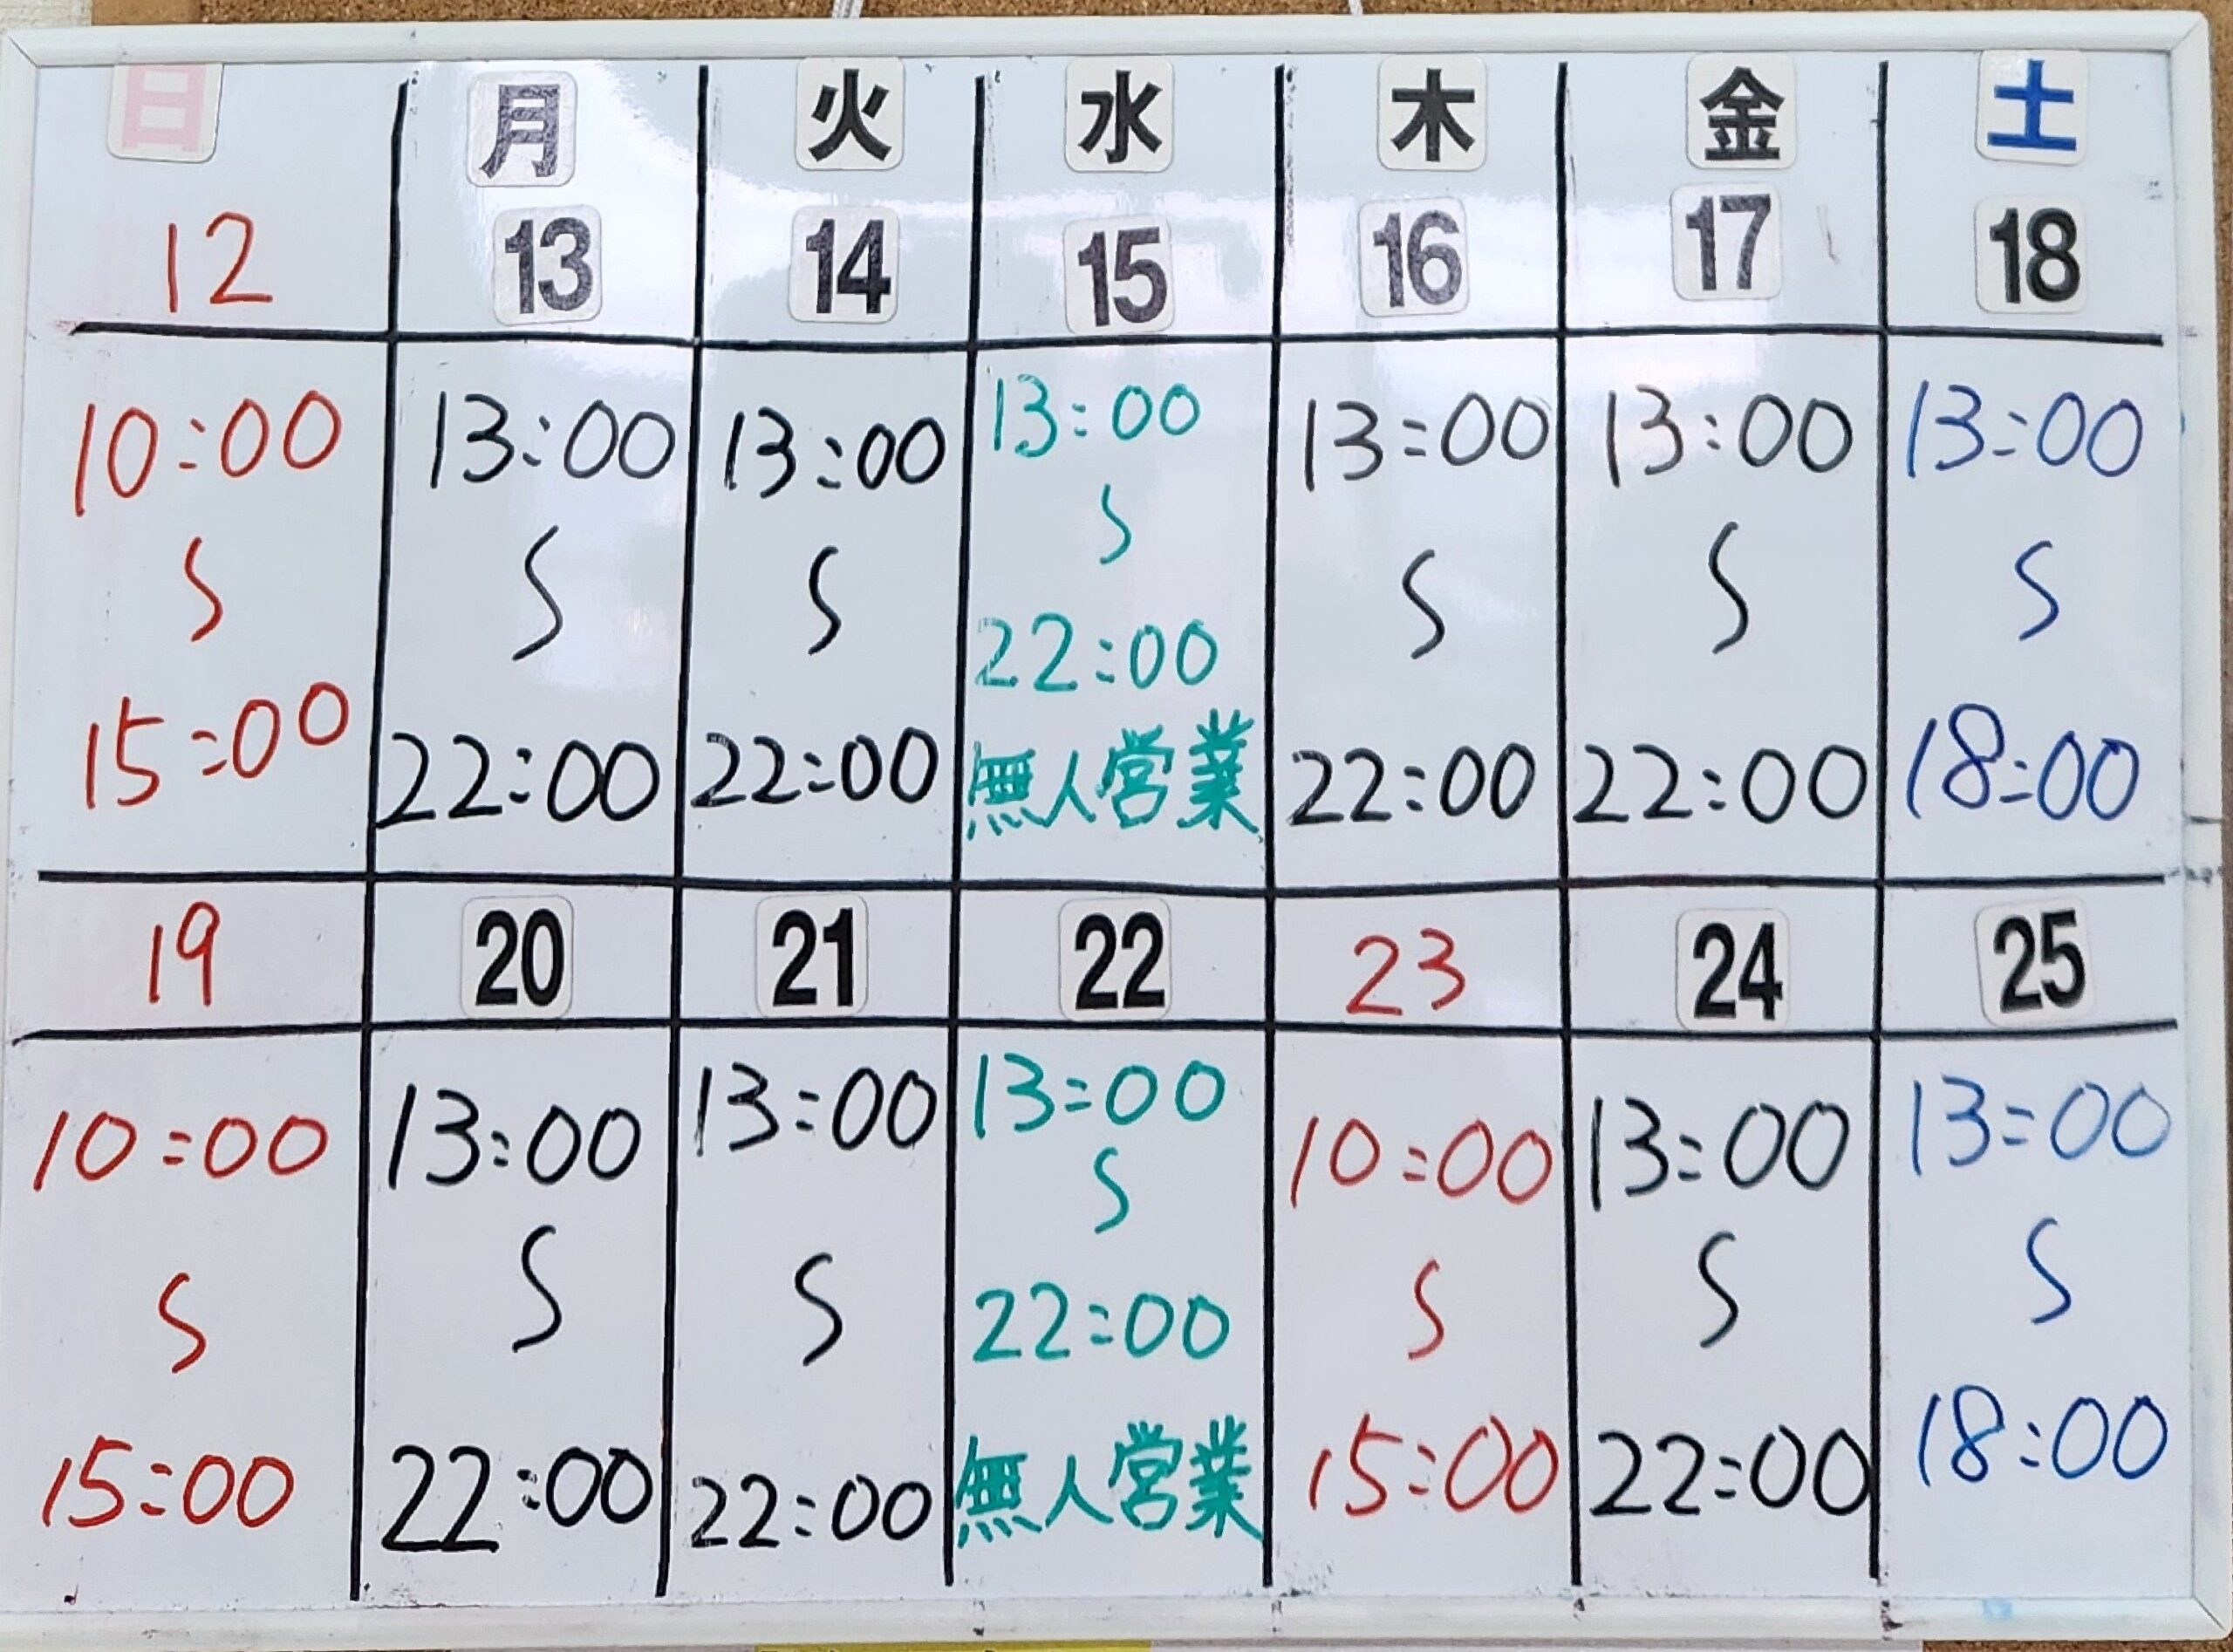 日 月 火 水 木 金 土
12 13 14 15 16 17 18
10:00 13:00 13:00 13:00 13:00 13:00 13:00
〜 〜 〜 〜 〜 〜 〜
15:00 22:00 22:00 22:00 22:00 22:00 18:00
無人営業
19 20 21 22 23 24 25
10:00 13:00 13:00 13:00 10:00 13:00 13:00
〜 〜 〜 〜 〜 〜 〜
15:00 22:00 22:00 22:00 15:00 22:00 18:00
無人営業